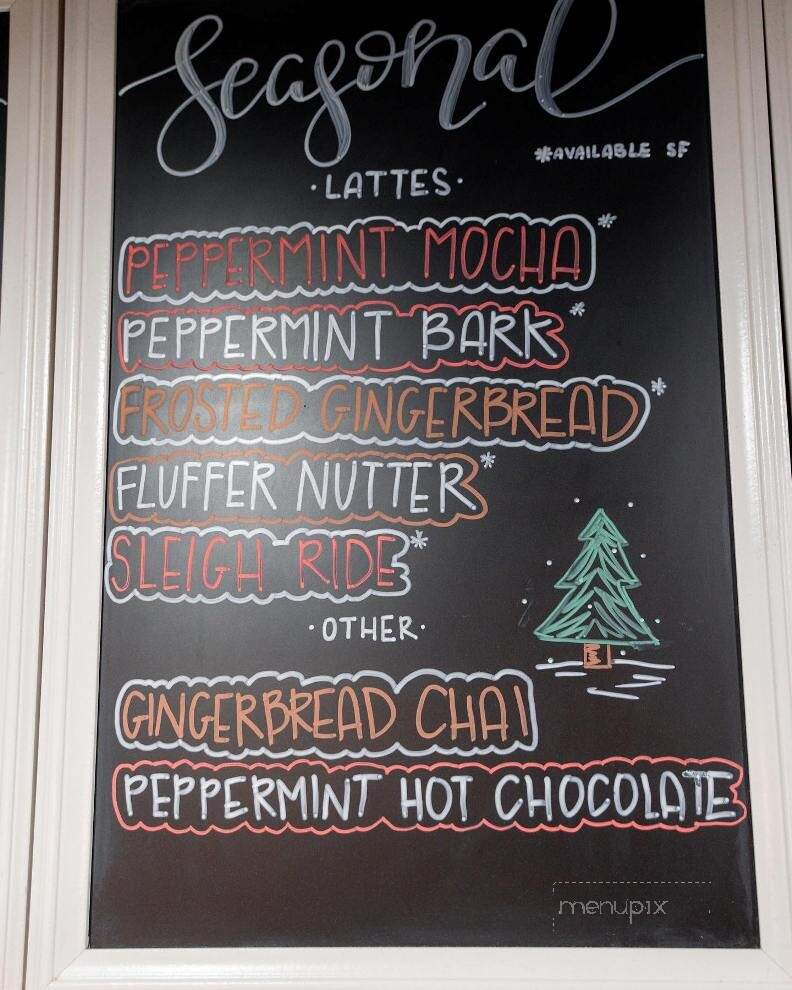 Seasonal
*AVAILABLE SF
·LATTES·
PEPPERMINT MOCHA*
PEPPERMINT BARK*
FROSTED GINGERBREAD*
FLUFFER NUTTER*
SLEIGH RIDE*
·OTHER·
GINGERBREAD CHAI
PEPPERMINT HOT CHOCOLATE
menupix